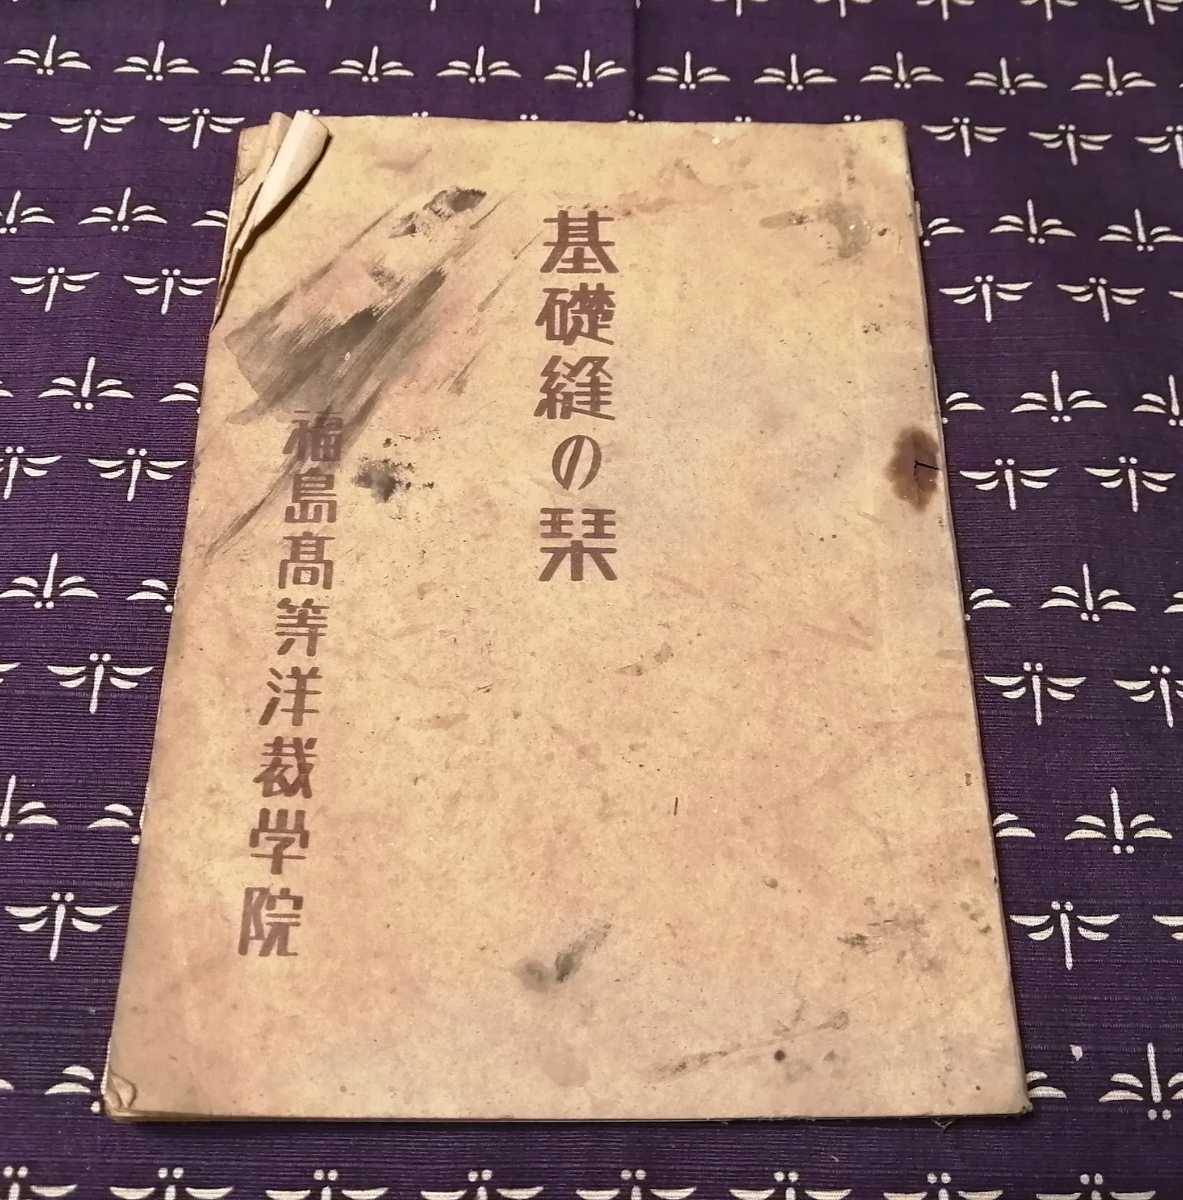 基礎縫の栞
福島髙等洋裁学院